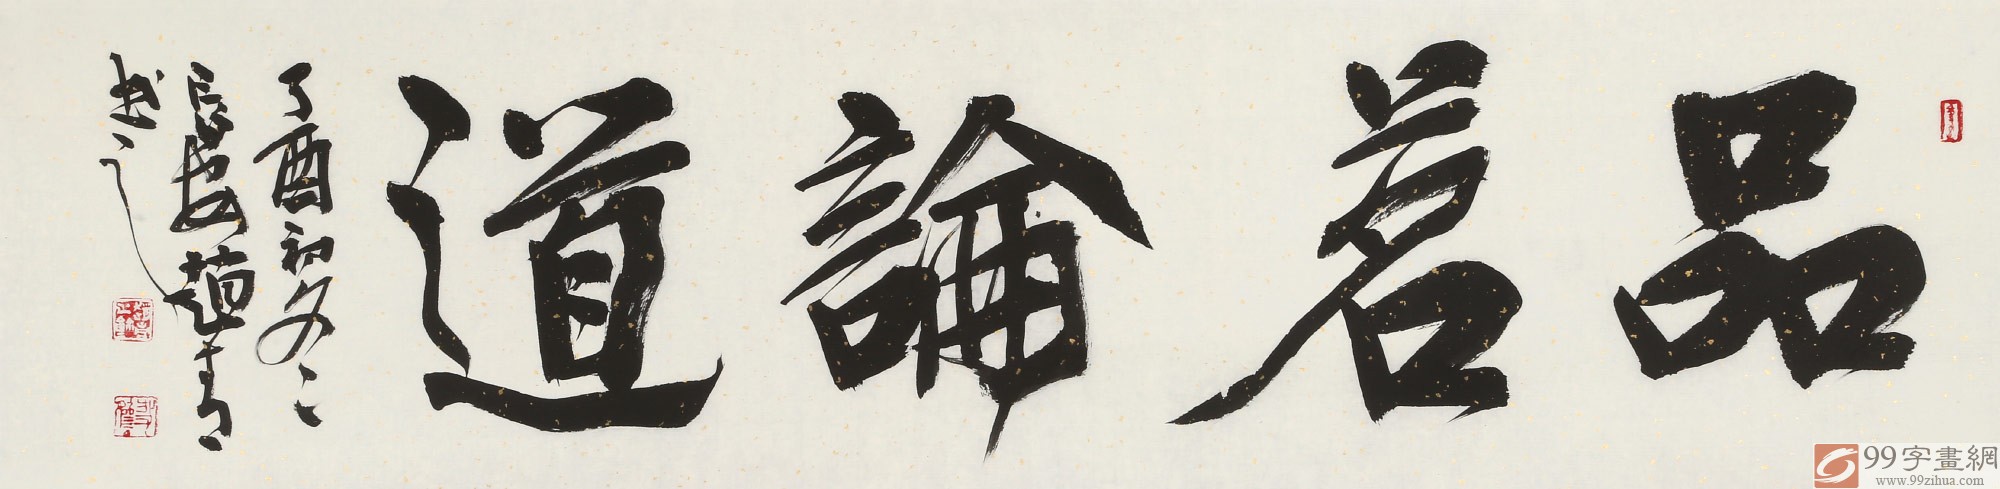 品茗論道
丁酉初冬
長安趙青
书之
99字畫網
www.99zihua.com